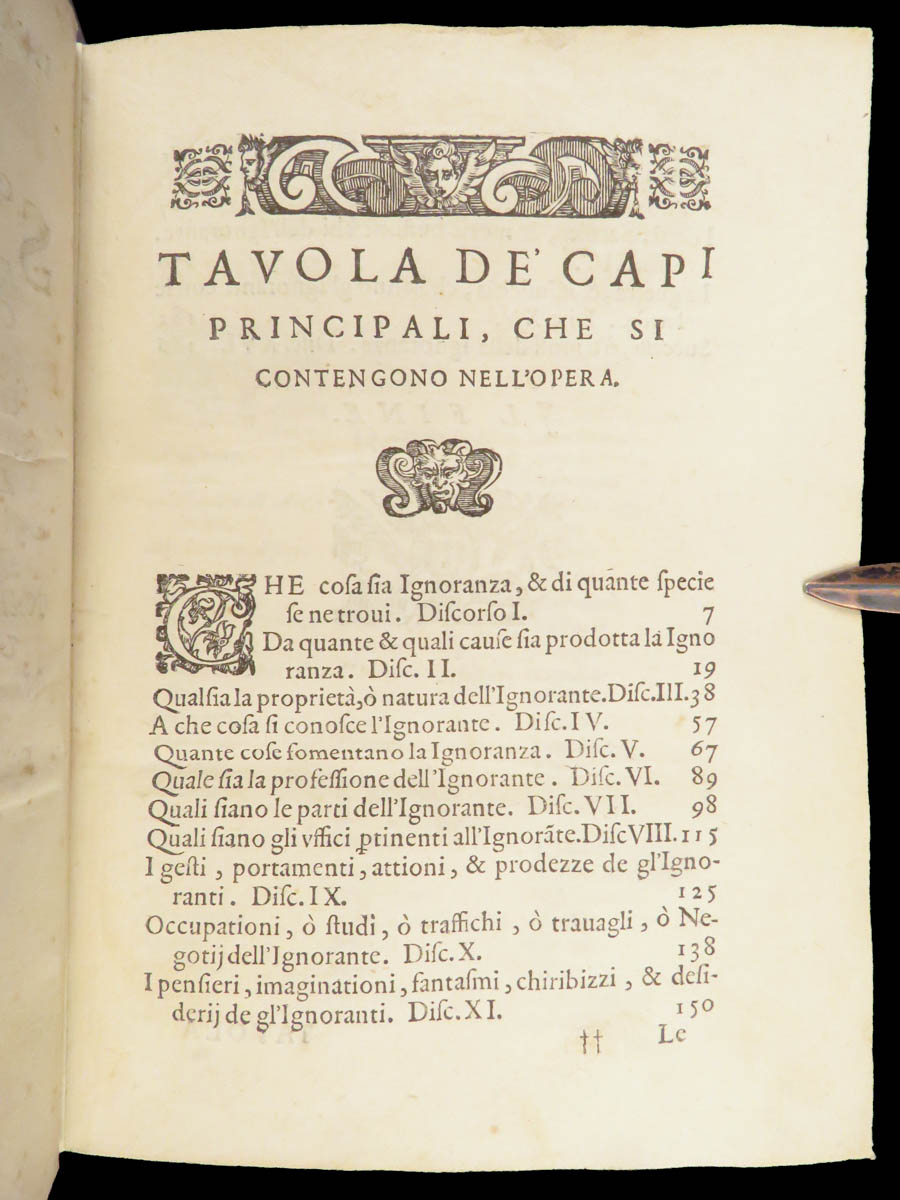 TAVOLA DE' CAPI
PRINCIPALI, CHE SI
CONTENGONO NELL'OPERA.
CHE coſa ſia Ignoranza, & di quante ſpecie
ſe ne troui. Diſcorſo I. 7
Da quante & quali cauſe ſia prodotta la Igno
ranza. Diſc. II. 19
Qual ſia la proprietà, ò natura dell'Ignorante. Diſc. III. 38
A che coſa ſi conoſce l'Ignorante. Diſc. IV. 57
Quante coſe fomentano la Ignoranza. Diſc. V. 67
Quale ſia la profeſſione dell'Ignorante. Diſc. VI. 89
Quali ſiano le parti dell'Ignorante. Diſc. VII. 98
Quali ſiano gli vffici ꝑtinenti all'Ignorãte. Diſc VIII. 115
I geſti, portamenti, attioni, & prodezze de gl'Igno-
ranti. Diſc. IX. 125
Occupationi, ò ſtudi, ò traffichi, ò trauagli, ò Ne-
gotij dell'Ignorante. Diſc. X. 138
I penſieri, imaginationi, fantaſmi, chiribizzi, & deſi-
derij de gl'Ignoranti. Diſc. XI. 150
†† Le